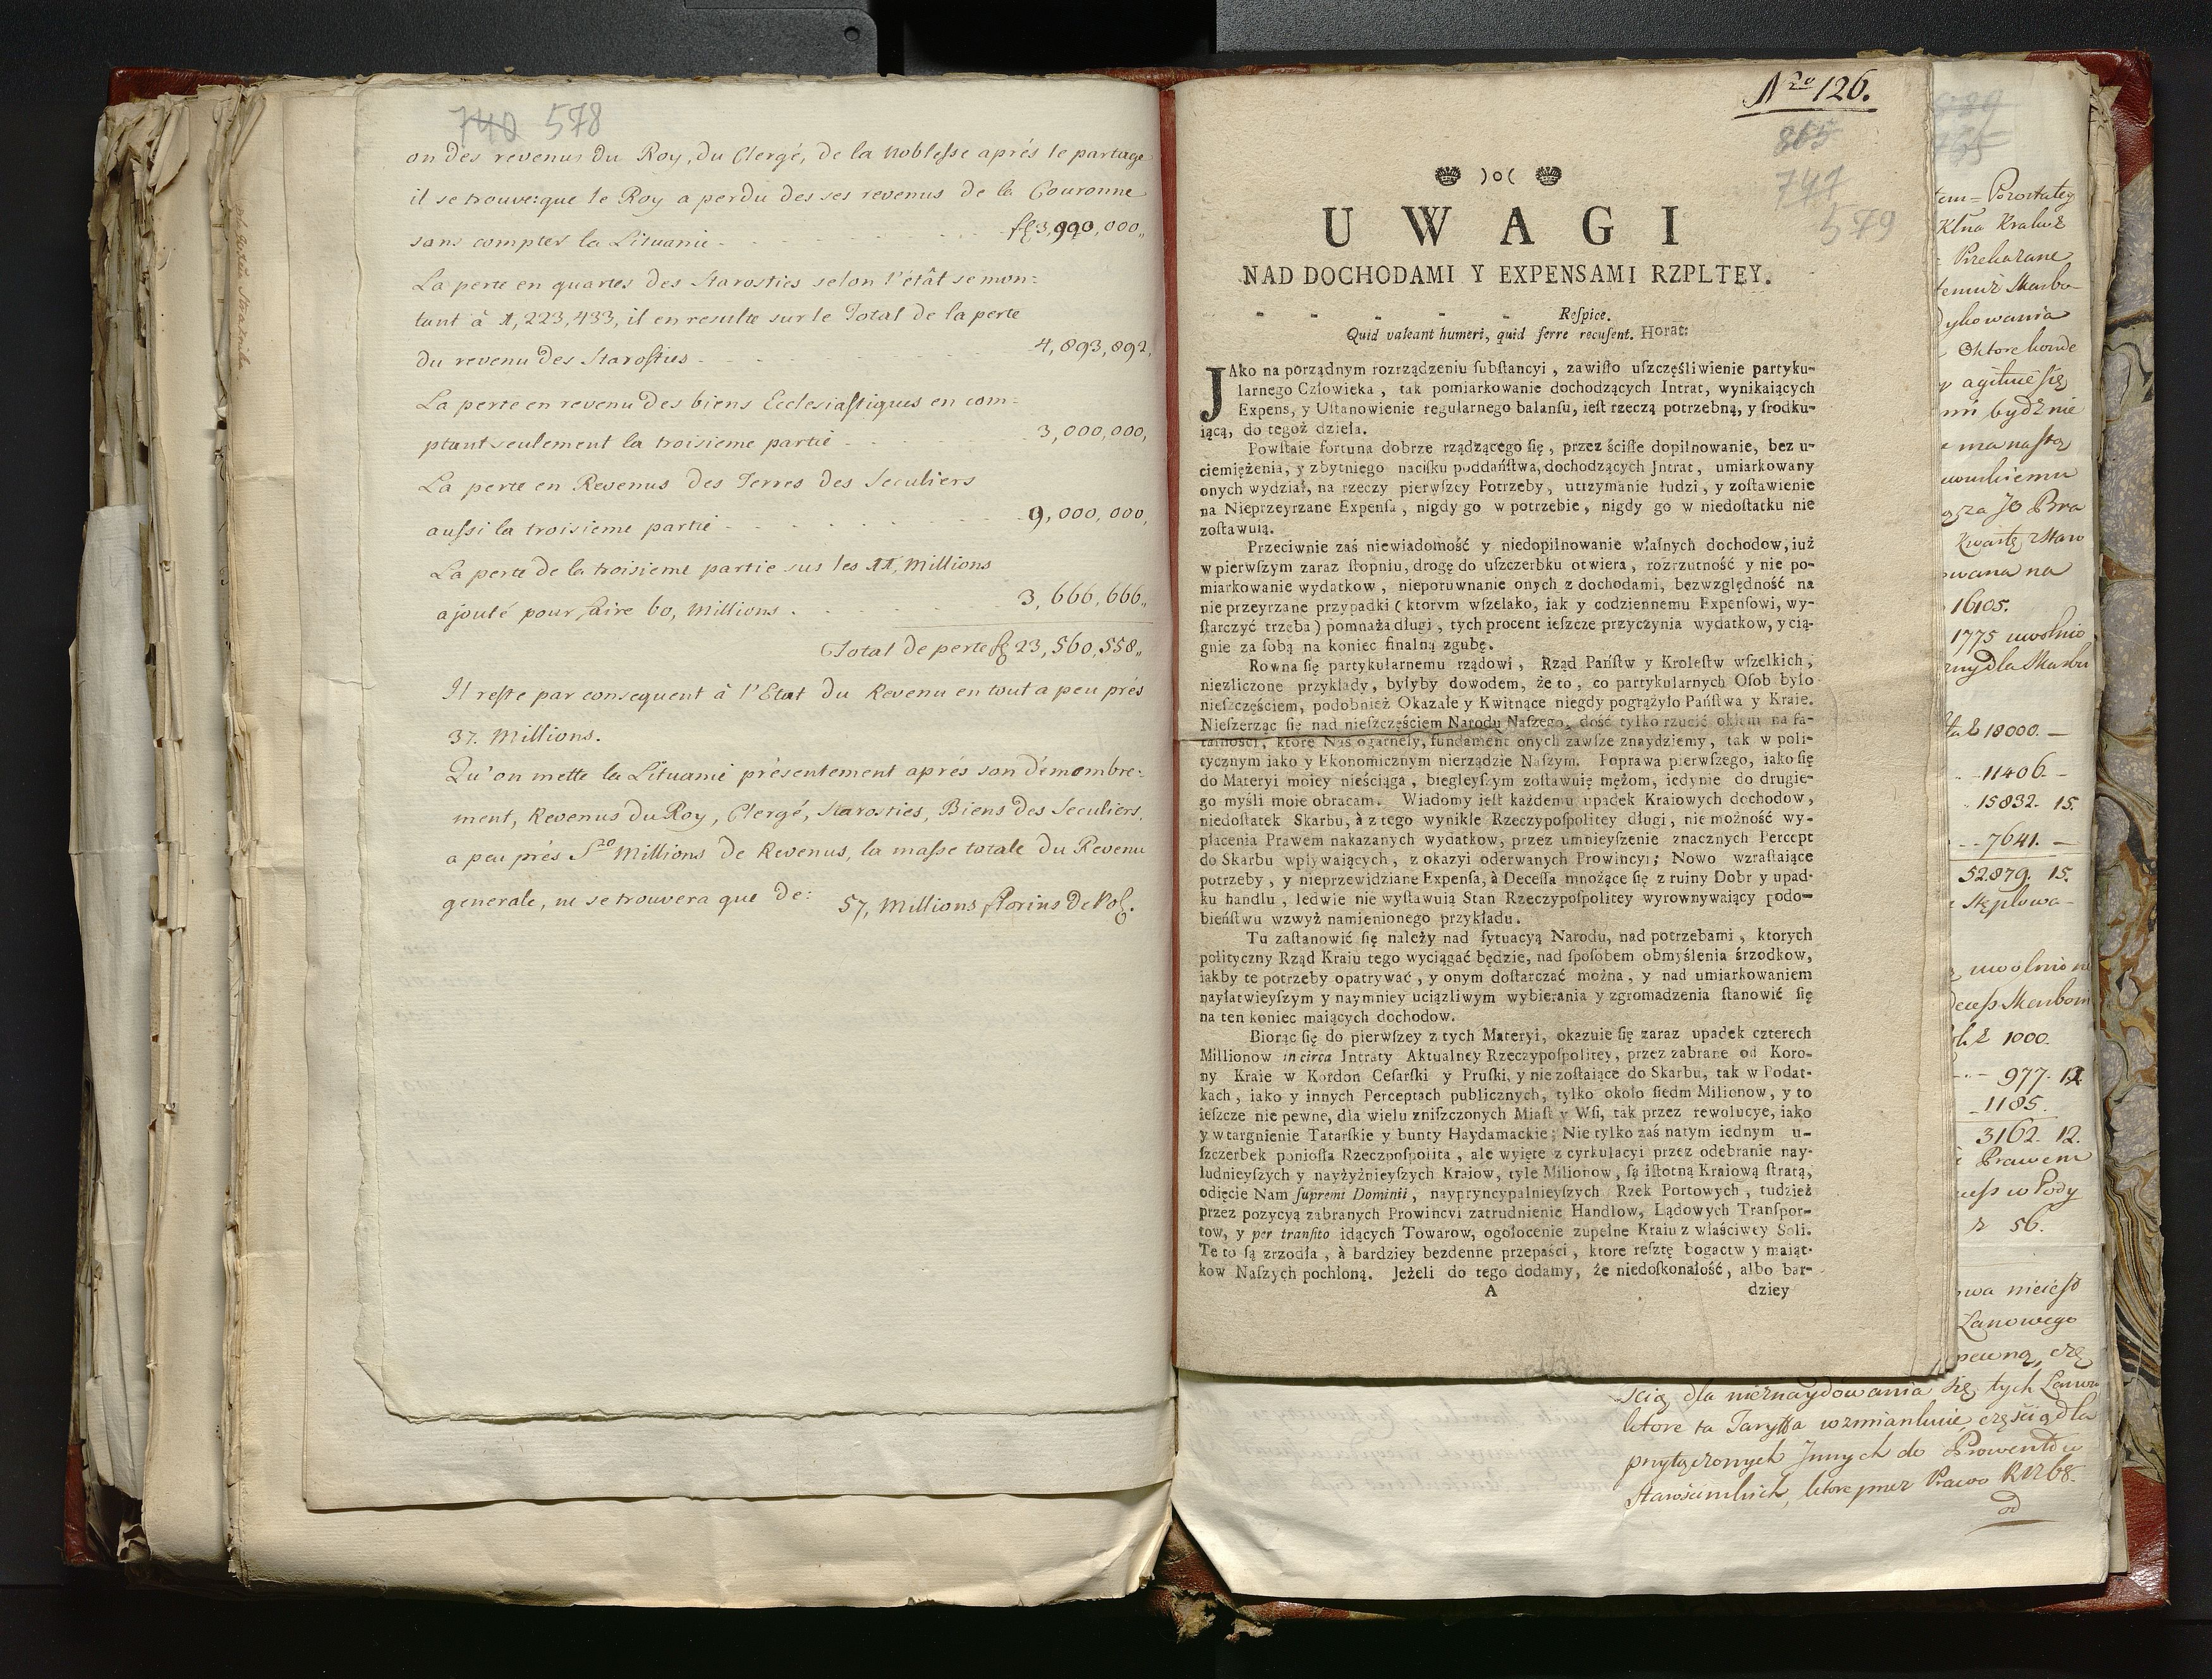 740 578
on des revenus du Roy, du Clergé, de la Noblesse aprés le partage
il se trouve: que le Roy a perdu des ses revenus de la Couronne
sans compter la Lituanie - - - fl 3,990,000,,
La perte en quartes des Starosties selon l'état se mon=
tant à 1,223,433, il en resulte sur le Total de la perte
du revenu des Starosties - - - 4,893,892,
La perte en revenu des biens Ecclesiastiques en com=
ptant seulement la troisieme partie - - - 3,000,000,
La perte en Revenus des Terres des Seculiers
aussi la troisieme partie - - - 9,000,000,
La perte de la troisieme partie sus les 11, Millions
ajouté pour faire 60, Millions. - - - 3,666,666,,
Total de perte fl 23,560,558,,
Il reste par consequent à l'Etat du Revenu en tout a peu prés
37. Millions.
Qu'on mette la Lituanie présentement aprés son démembre=
ment, Revenus du Roy, Clergé, Starosties, Biens des Seculiers,
a peu prés 20 Millions de Revenus, la masse totale du Revenu
generale, ne se trouvera que de: 57, Millions florins de Pol.
Nro 126.
865
741
579
)o(
UWAGI
NAD DOCHODAMI Y EXPENSAMI RZPLTEY.
- - - - - Reſpice.
Quid valeant humeri, quid ferre recuſent. Horat:
JAko na porządnym rozrządzeniu ſubſtancyi, zawiſło uſzczęśliwienie partyku-
larnego Człowieka, tak pomiarkowanie dochodzących Intrat, wynikaiących
Expens, y Uſtanowienie regularnego balanſu, ieſt rzeczą potrzebną, y ſrodku-
iącą, do tegoż dzieła.
Powſtaie fortuna dobrze rządzącego ſię, przez ściſłe dopilnowanie, bez u-
ciemiężenia, y zbytniego naciſku poddańſtwa, dochodzących Jntrat, umiarkowany
onych wydział, na rzeczy pierwſzey Potrzeby, utrzymanie ludzi, y zoſtawienie
na Nieprzeyrzane Expenſa, nigdy go w potrzebie, nigdy go w niedoſtatku nie
zoſtawuią.
Przeciwnie zaś niewiadomość y niedopilnowanie właſnych dochodow, iuż
w pierwſzym zaraz ſtopniu, drogę do uſzczerbku otwiera, rozrzutność y nie po-
miarkowanie wydatkow, nieporuwnanie onych z dochodami, bezwzględność na
nie przeyrzane przypadki (ktorym wſzelako, iak y codziennemu Expenſowi, wy-
ſtarczyć trzeba) pomnaża długi, tych procent ieſzcze przyczynia wydatkow, y cią-
gnie za ſobą na koniec finalną zgubę.
Rowna ſię partykularnemu rządowi, Rząd Pańſtw y Kroleſtw wſzelkich,
niezliczone przykłady, byłyby dowodem, że to, co partykularnych Oſob było
nieſzczęściem, podobnież Okazałe y Kwitnące niegdy pogrążyło Pańſtwa y Kraie.
Nieſzerząc ſię nad nieſzczęściem Narodu Naſzego, dość tylko rzucić okiem na fa-
talności, ktore Nas ogarnęły, fundament onych zawſze znaydziemy, tak w poli-
tycznym iako y Ekonomicznym nierządzie Naſzym. Poprawa pierwſzego, iako ſię
do Materyi moiey nieściąga, biegleyſzym zoſtawuię mężom, iedynie do drugie-
go myśli moie obracam. Wiadomy ieſt każdemu upadek Kraiowych dochodow,
niedoſtatek Skarbu, à z tego wynikłe Rzeczypoſpolitey długi, nie możność wy-
płacenia Prawem nakazanych wydatkow, przez umnieyſzenie znacznych Percept
do Skarbu wpływaiących, z okazyi oderwanych Prowincyi; Nowo wzraſtaiące
potrzeby, y nieprzewidziane Expenſa, à Deceſſa mnożące ſię z ruiny Dobr y upad-
ku handlu, ledwie nie wyſtawuią Stan Rzeczypoſpolitey wyrownywaiący podo-
bieńſtwu wzwyż namienionego przykładu.
Tu zaſtanowić ſię należy nad ſytuacyą Narodu, nad potrzebami, ktorych
polityczny Rząd Kraiu tego wyciągać będzie, nad ſpoſobem obmyślenia śrzodkow,
iakby te potrzeby opatrywać, y onym doſtarczać można, y nad umiarkowaniem
nayłatwieyſzym y naymniey uciążliwym wybierania y zgromadzenia ſtanowić ſię
na ten koniec maiących dochodow.
Biorąc ſię do pierwſzey z tych Materyi, okazuie ſię zaraz upadek czterech
Millionow in circa Jntraty Aktualney Rzeczypoſpolitey, przez zabrane od Koro-
ny Kraie w Kordon Ceſarſki y Pruſki, y nie zoſtaiące do Skarbu, tak w Podat-
kach, iako y innych Perceptach publicznych, tylko około ſiedm Milionow, y to
ieſzcze nie pewne, dla wielu zniſzczonych Miaſt y Wſi, tak przez rewolucye, iako
y wtargnienie Tatarſkie y bunty Haydamackie; Nie tylko zaś natym iednym u-
ſzczerbek ponioſła Rzeczpoſpolita, ale wyięte z cyrkulacyi przez odebranie nay-
ludnieyſzych y nayżyźnieyſzych Kraiow, tyle Milionow, ſą iſtotną Kraiową ſtratą,
odięcie Nam ſupremi Dominii, naypryncypalnieyſzych Rzek Portowych, tudzież
przez pozycyą zabranych Prowincyi zatrudnienie Handlow, Lądowych Tranſpor-
tow, y per tranſito idących Towarow, ogołocenie zupełne Kraiu z właściwey Soli.
Te to ſą zrzodła, à bardziey bezdenne przepaści, ktore reſztę bogactw y maiąt-
kow Naſzych pochłoną. Jeżeli do tego dodamy, że niedoſkonałość, albo bar-
A dziey
Pozostałey
Przekazane
Skarbu
dykowania
agituie się
bydź nie
Jo Bra
Kwartę
wana na
16105.
1775 uwolnio
dla Skarbu
18000. -
11406. -
15832. 15.
7641. -
52879. 15.
Stęplowa-
uwolnione
1000.
977. 12
1185.
3162. 12.
Prawem
w Pody
56.
Łanowego
pewną, czę
ścią dla nieznaydowania się tych Łanow
ktore ta Taryffa wzmiankuie, częścią dla
przyłączonych Jnnych do Prowentow
Starościnskich, ktore przez Prawo R 1768.
od